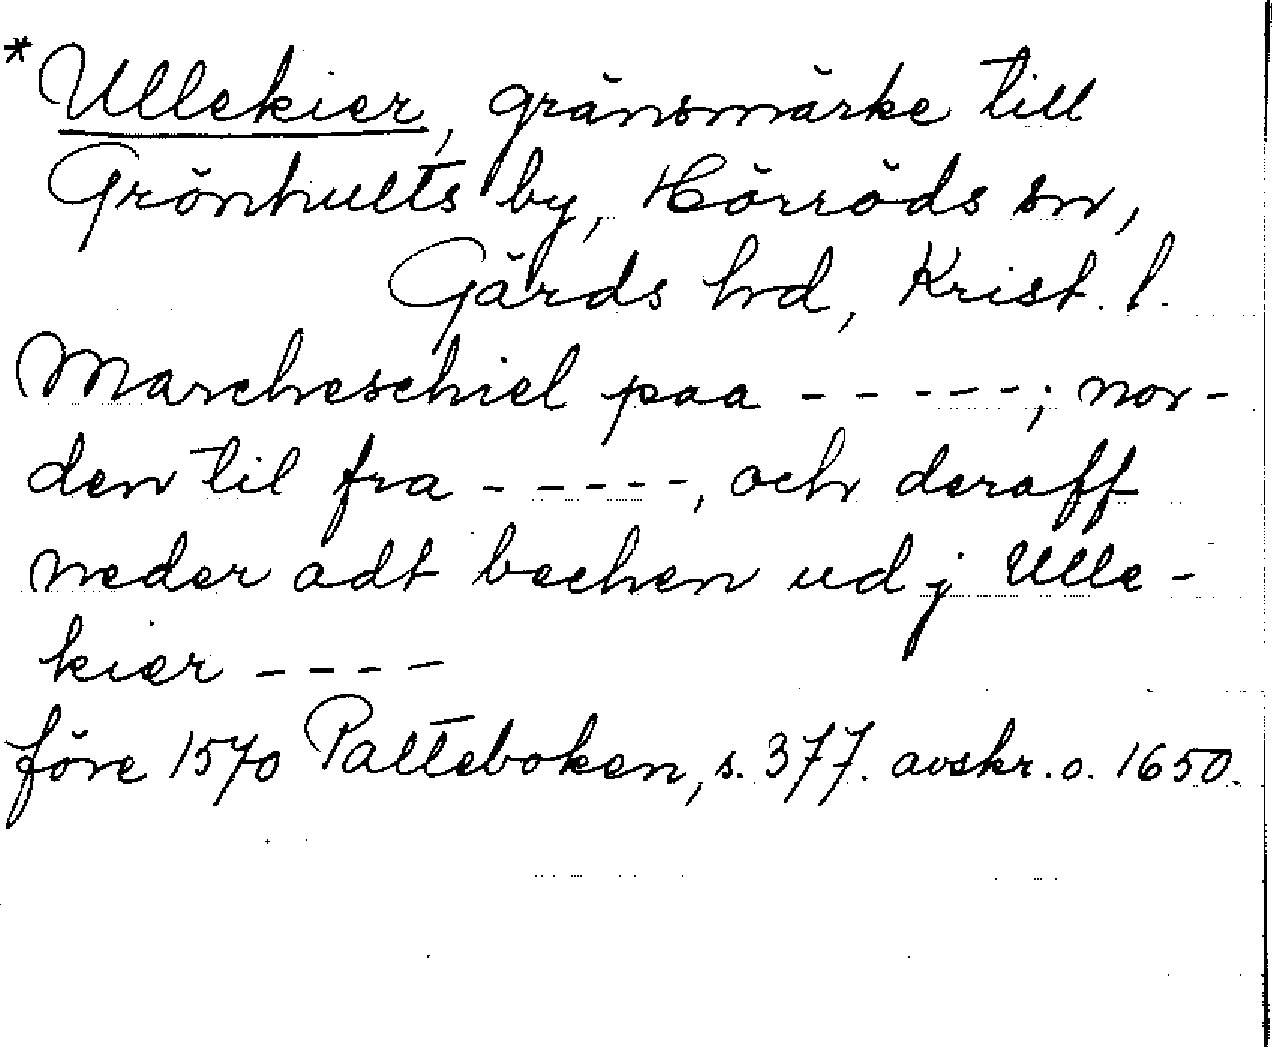 *Ullekier, gränsmärke till
Grönhults by, Hörröds sn,
Gärds hrd, Krist. l.
Marcheschiel paa - - - - -; nor-
den til fra - - - - -, och deraff
neder adt bechen ud j Ulle-
kier - - - -
före 1570 Palteboken, s. 377. avskr. o. 1650.